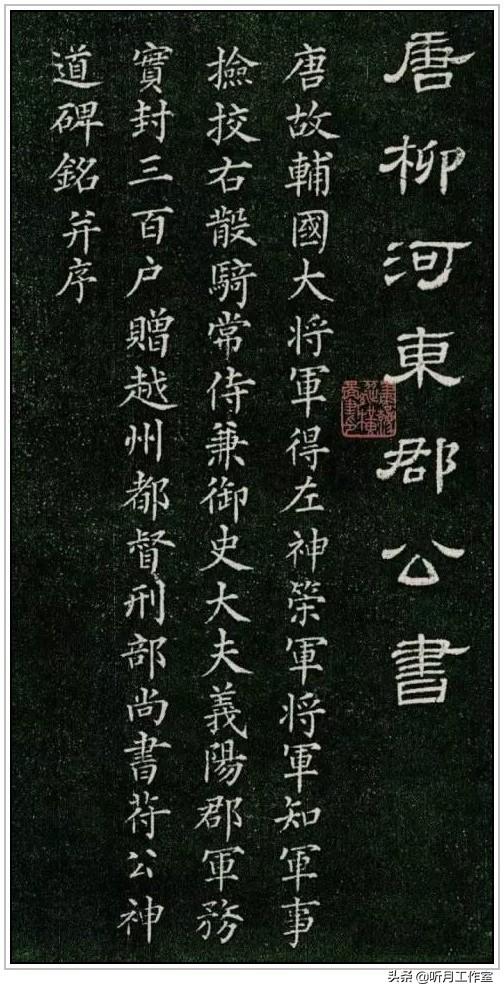 唐柳河東郡公書
唐故輔國大将軍得左神筞軍将軍知軍事
撿挍右散騎常侍兼御史大夫義陽郡軍務
實封三百户贈越州都督刑部尚書苻公神
道碑銘并序
头条 @听月工作室